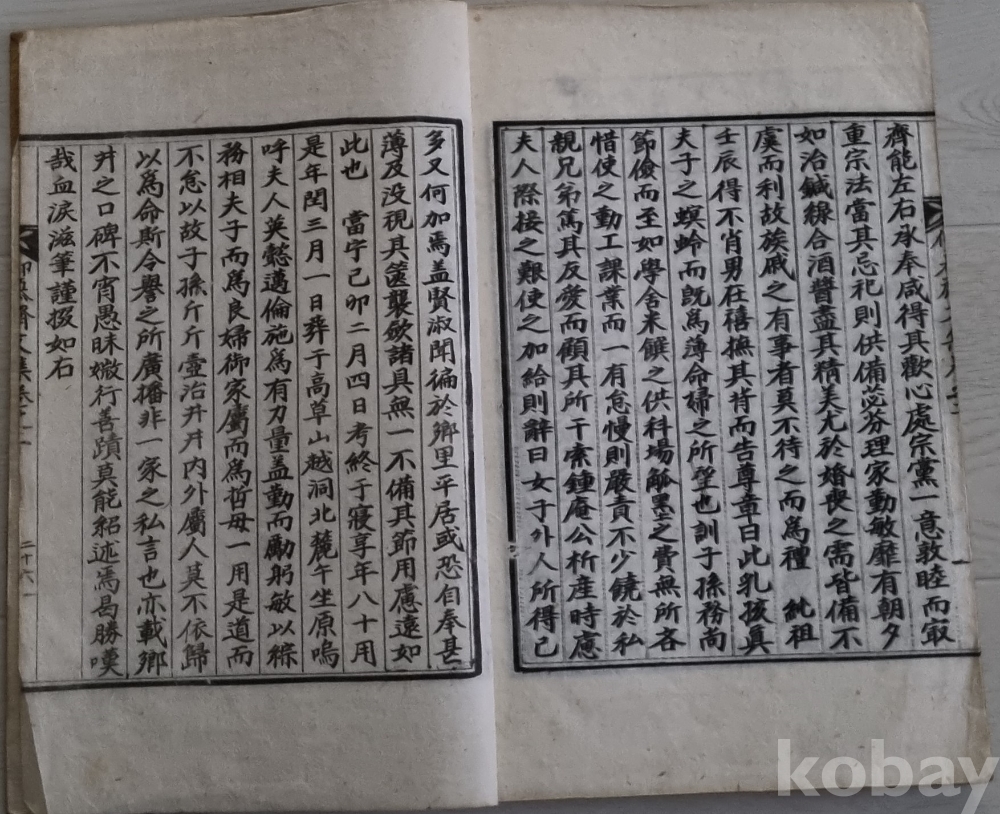 齊能左右承奉咸得其歡心處宗黨一意敦睦而㝡
重宗法當其忌祀則供備苾芬理家勤敏靡有朝夕
如治鍼線合酒醬盡其精美尤於婚喪之需皆備不
虞而利故族戚之有事者莫不待之而爲禮 純祖
壬辰得不肖男在禧撫其背而告尊章曰此乳孩眞
夫子之螟蛉而旣爲薄命婦之所望也訓子孫務尙
節儉而至如學舍米饌之供科場觚墨之費無所吝
惜使之勤工課業而一有怠慢則嚴責不少饒於私
親兄弟篤其反愛而顧其所干索鍾庵公析産時慮
夫人際接之艱使之加給則辭曰女子外人所得已
多又何加焉盖賢淑聞徧於鄕里平居或恐自奉甚
薄及没視其篋襲斂諸具無一不備其節用慮遠如
此也 當宁己卯二月四日考終于寢享年八十用
是年閏三月一日葬于高草山越洞北麓午坐原嗚
呼夫人英懿邁倫施爲有刀量盖勤而勵躬敏以綜
務相夫子而爲良婦御家屬而爲哲毋一用是道而
不怠以故子孫斤斤壼治井井內外屬人莫不依歸
以爲命斯令譽之所廣播非一家之私言也亦載鄕
井之口碑不宵愚昧媺行善蹟莫能紹述焉曷勝嘆
哉血淚滋筆謹掇如右
齋文集卷十二
二十六
kobay